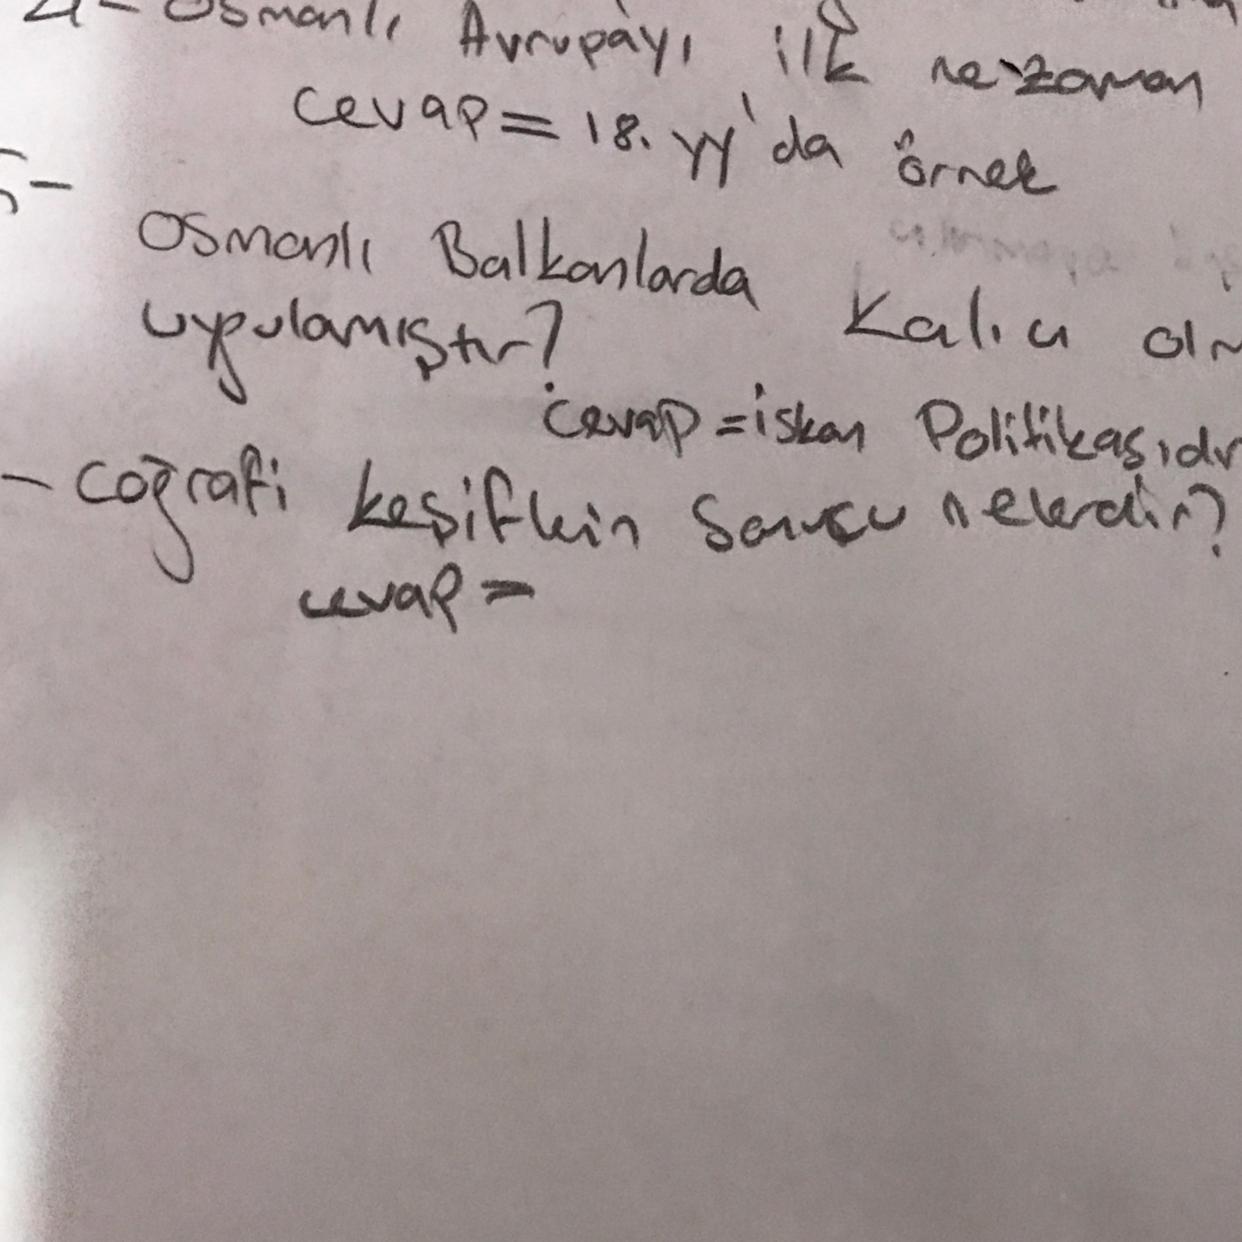 4- Osmanlı Avrupayı ilk ne zaman
cevap = 18. yy'da örnek
5-
Osmanlı Balkanlarda Kalıcı
uygulamıştır?
cevap = iskan Politikasıdır
- coğrafi keşiflein sonucu nelerdir?
cevap =